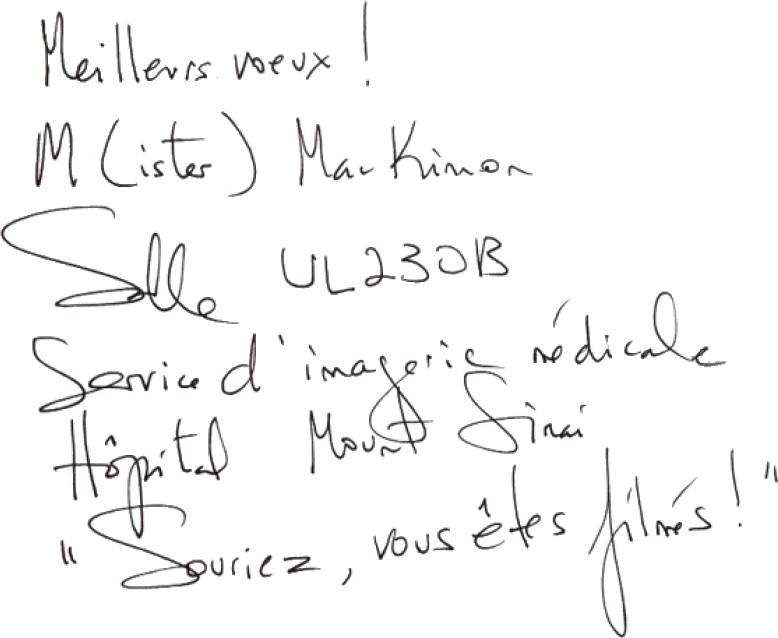 Meilleurs voeux !
M (ister) MacKinnon
Salle UL230B
Service d'imagerie médicale
Hôpital Mount Sinai
"Souriez, vous êtes filmés !"